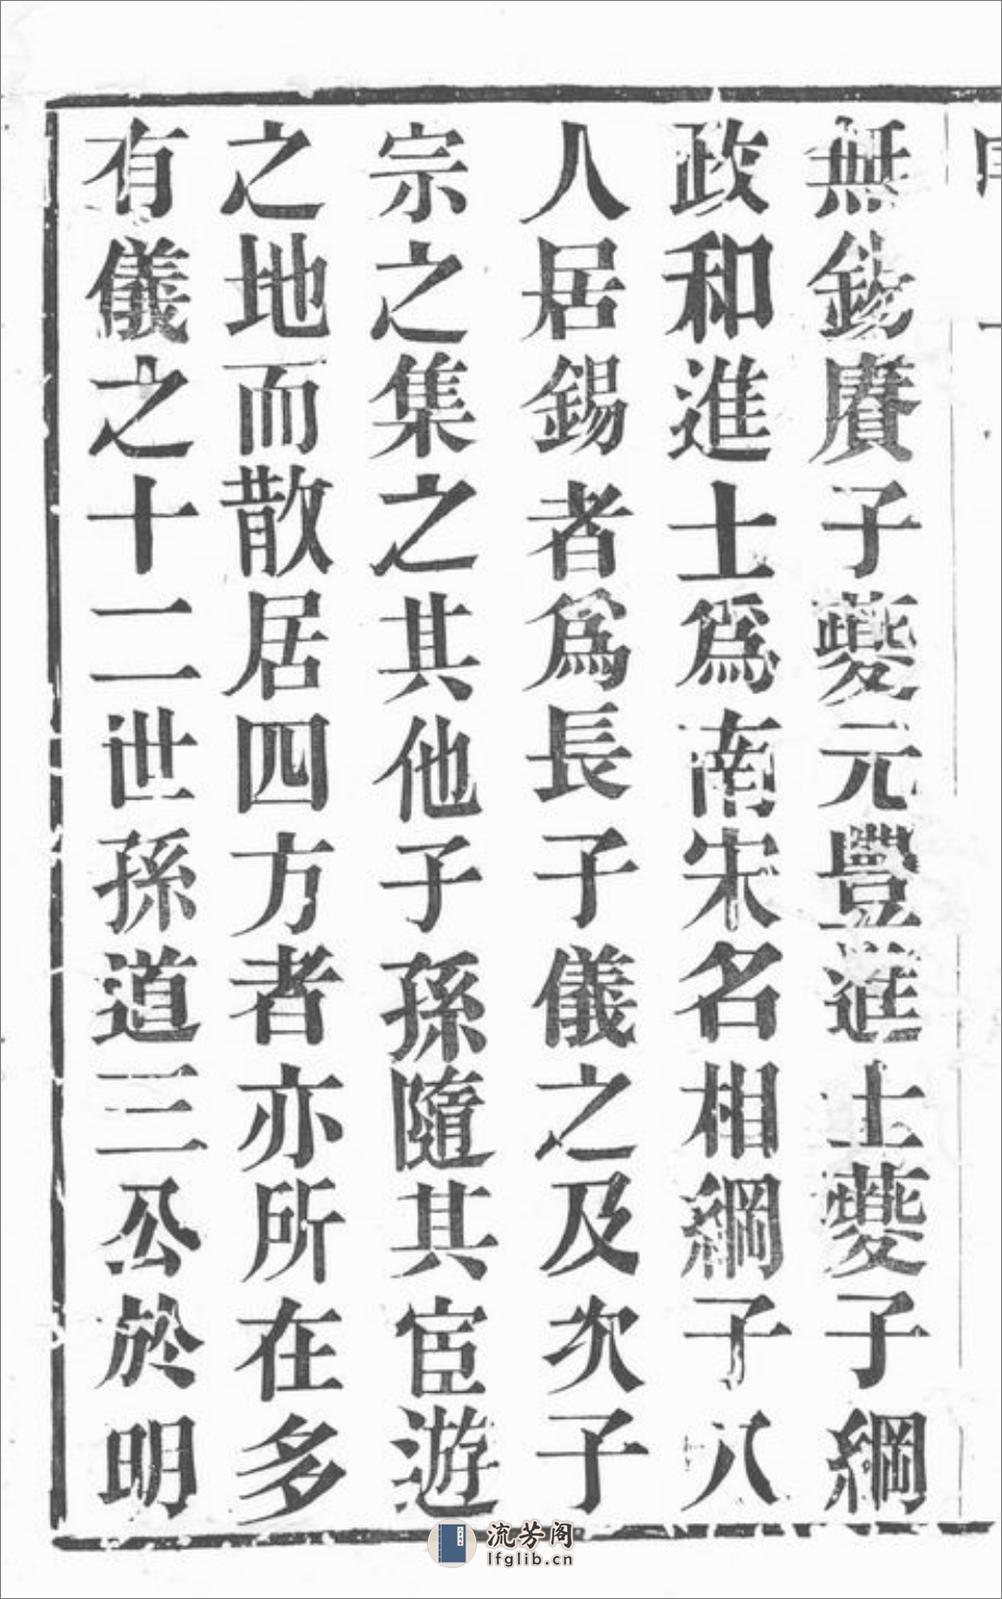 無錫賡子夔元豐進士夔子綱
政和進士為南宋名相綱子八
人居錫者為長子儀之及次子
宗之集之其他子孫隨其宦遊
之地而散居四方者亦所在多
有儀之十二世孫道三公於明
流芳阁
lfglib.cn